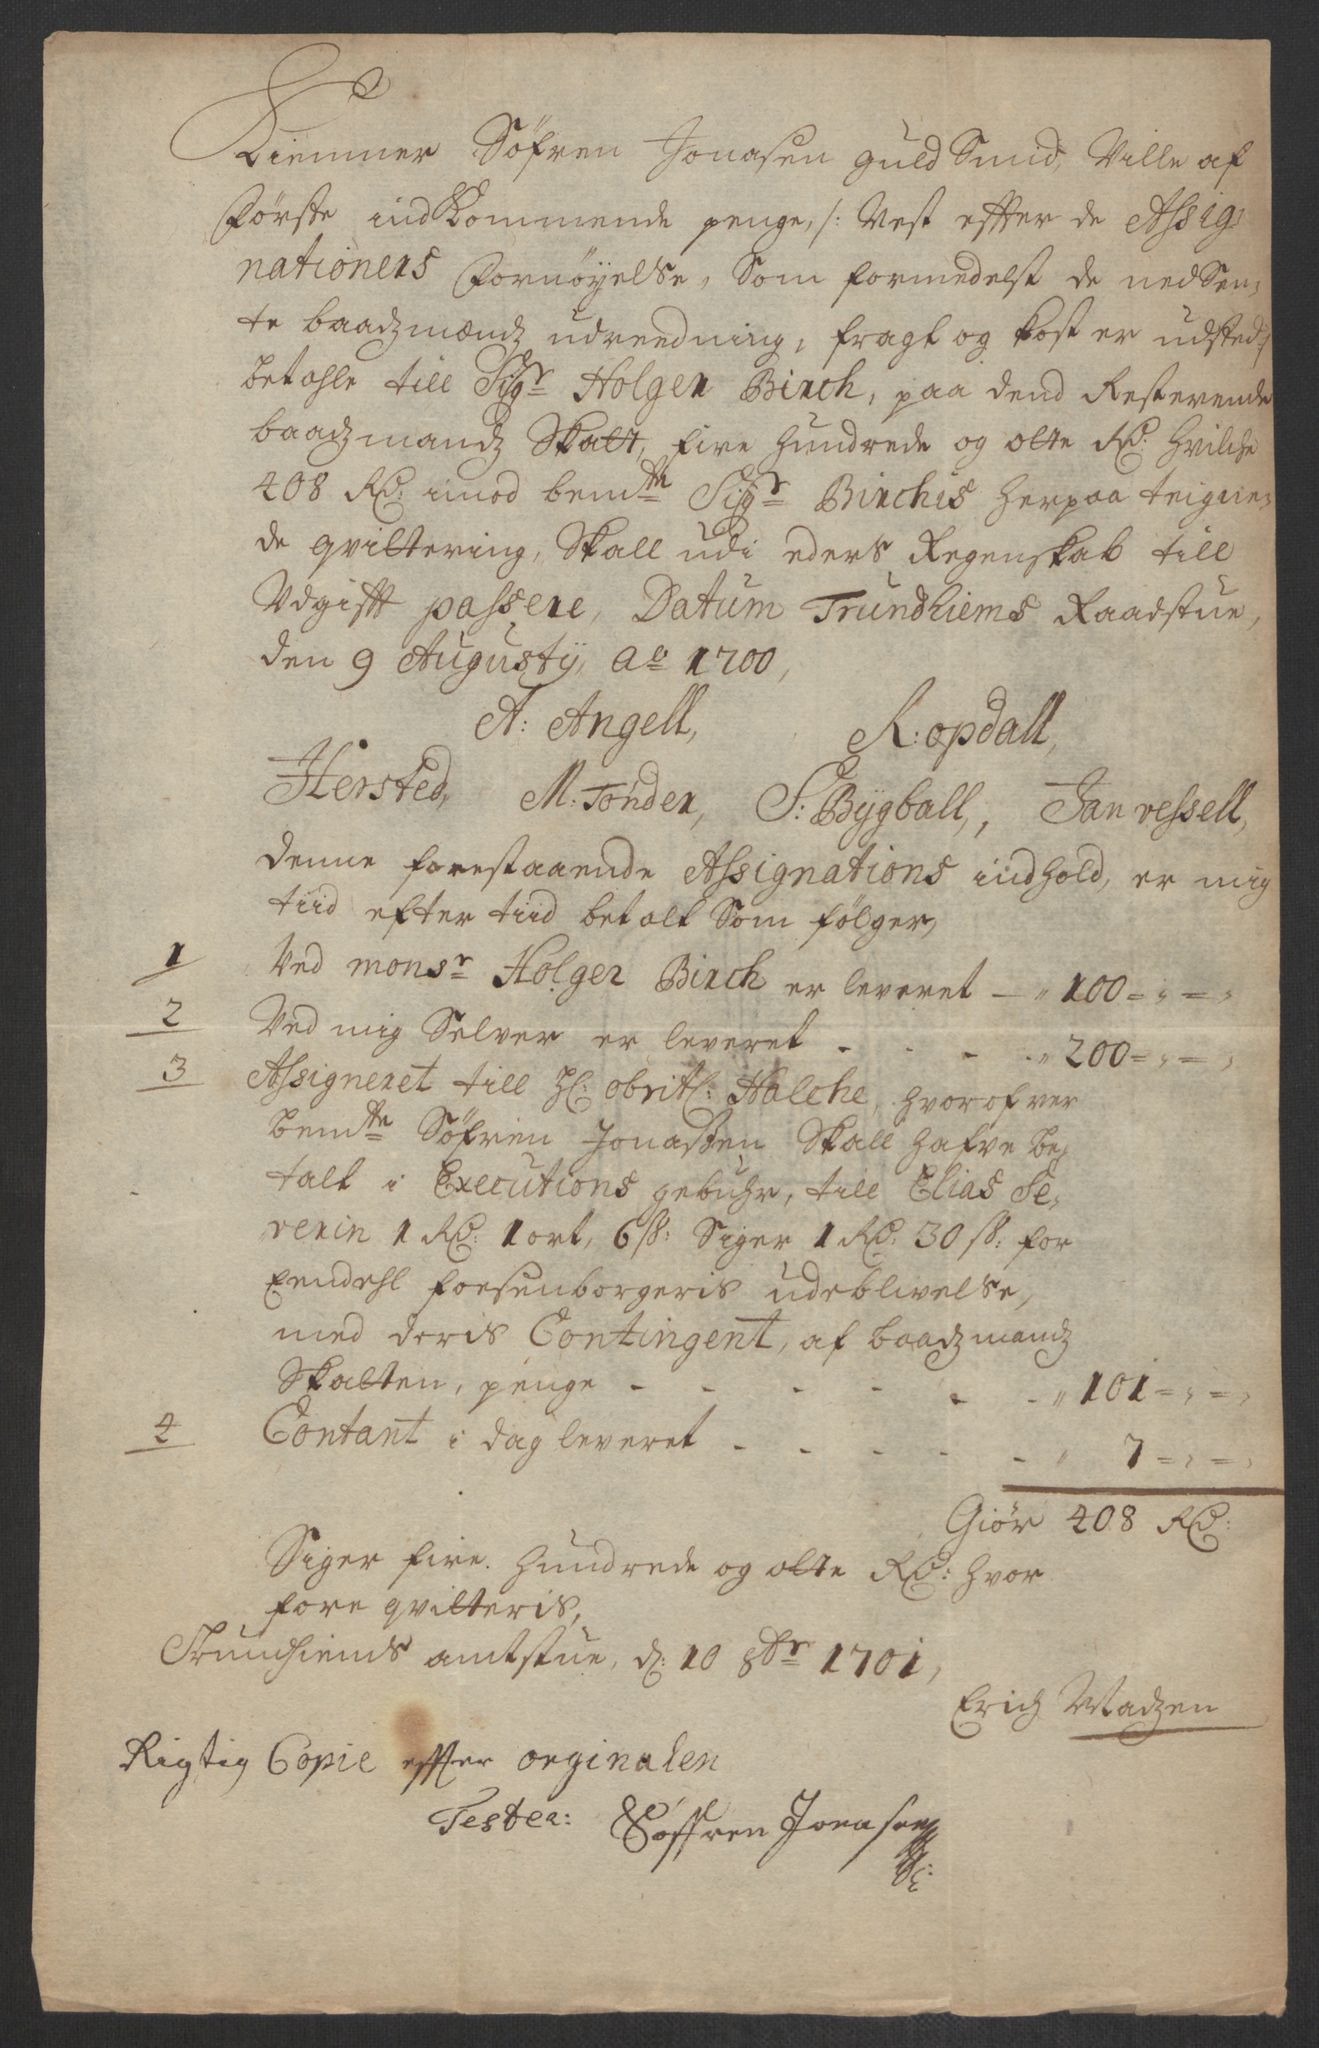 Kiemner Söfren Jonasen guld Smid, Ville af
Förste indkommende penge, /: Nest effter de Assig¬
nationers Fornöyelse, Som formedelst de nedSen¬
te baadzmændz udreedning, fragt og kost er udsted :/
betahle till Sigr Holger Birch, paa dend Resterende
baadzmandz Skatt, fire hundrede og otte Rd: hvilche
408 Rd: imod bemte Sigr Birchis herpaa teigne¬
de qvittering, Skall udi eders Regenskab till
Udgifft passere, Datum Trundhiems Raadstue,
den 9 Augusty, ao 1700,
A: Angell, R: opdall,
Hersted, M: Tönder, S: Bygball, Jan vessell,
Denne forestaaende Assignations indhold, er mig
tiid efter tiid betalt Som fölger,
1 Ved monsr Holger Birch er leveret — " 100 = , = ,
2 Ved mig Selver er leveret - - - - " 200 = , = ,
3 Assigneret till Hl: obritl: Halche, hvorofver
bemte Söfren Jonassen Skall hafve be¬
talt i Executions gebuhr, till Elias Se¬
verin 1 Rd: 1 ort, 6 ss: Siger 1 Rd: 30 ss: for
Eendehl foesenborgeris udeblivelse,
med deris Contingent, af baadzmandz
Skatten, penge - - - - - - " 101 = , = ,
4 Contant i dag leveret - - - - - " 7 = , = ,
Giör 408 Rd:
Siger fire hundrede og otte Rd: hvor
fore qvitteris,
Trundhiems amtstue, d: 10 8br 1701,
Erich Madzen
Rigtig Copie effter orginalen
Tester: Söffren Jonasen